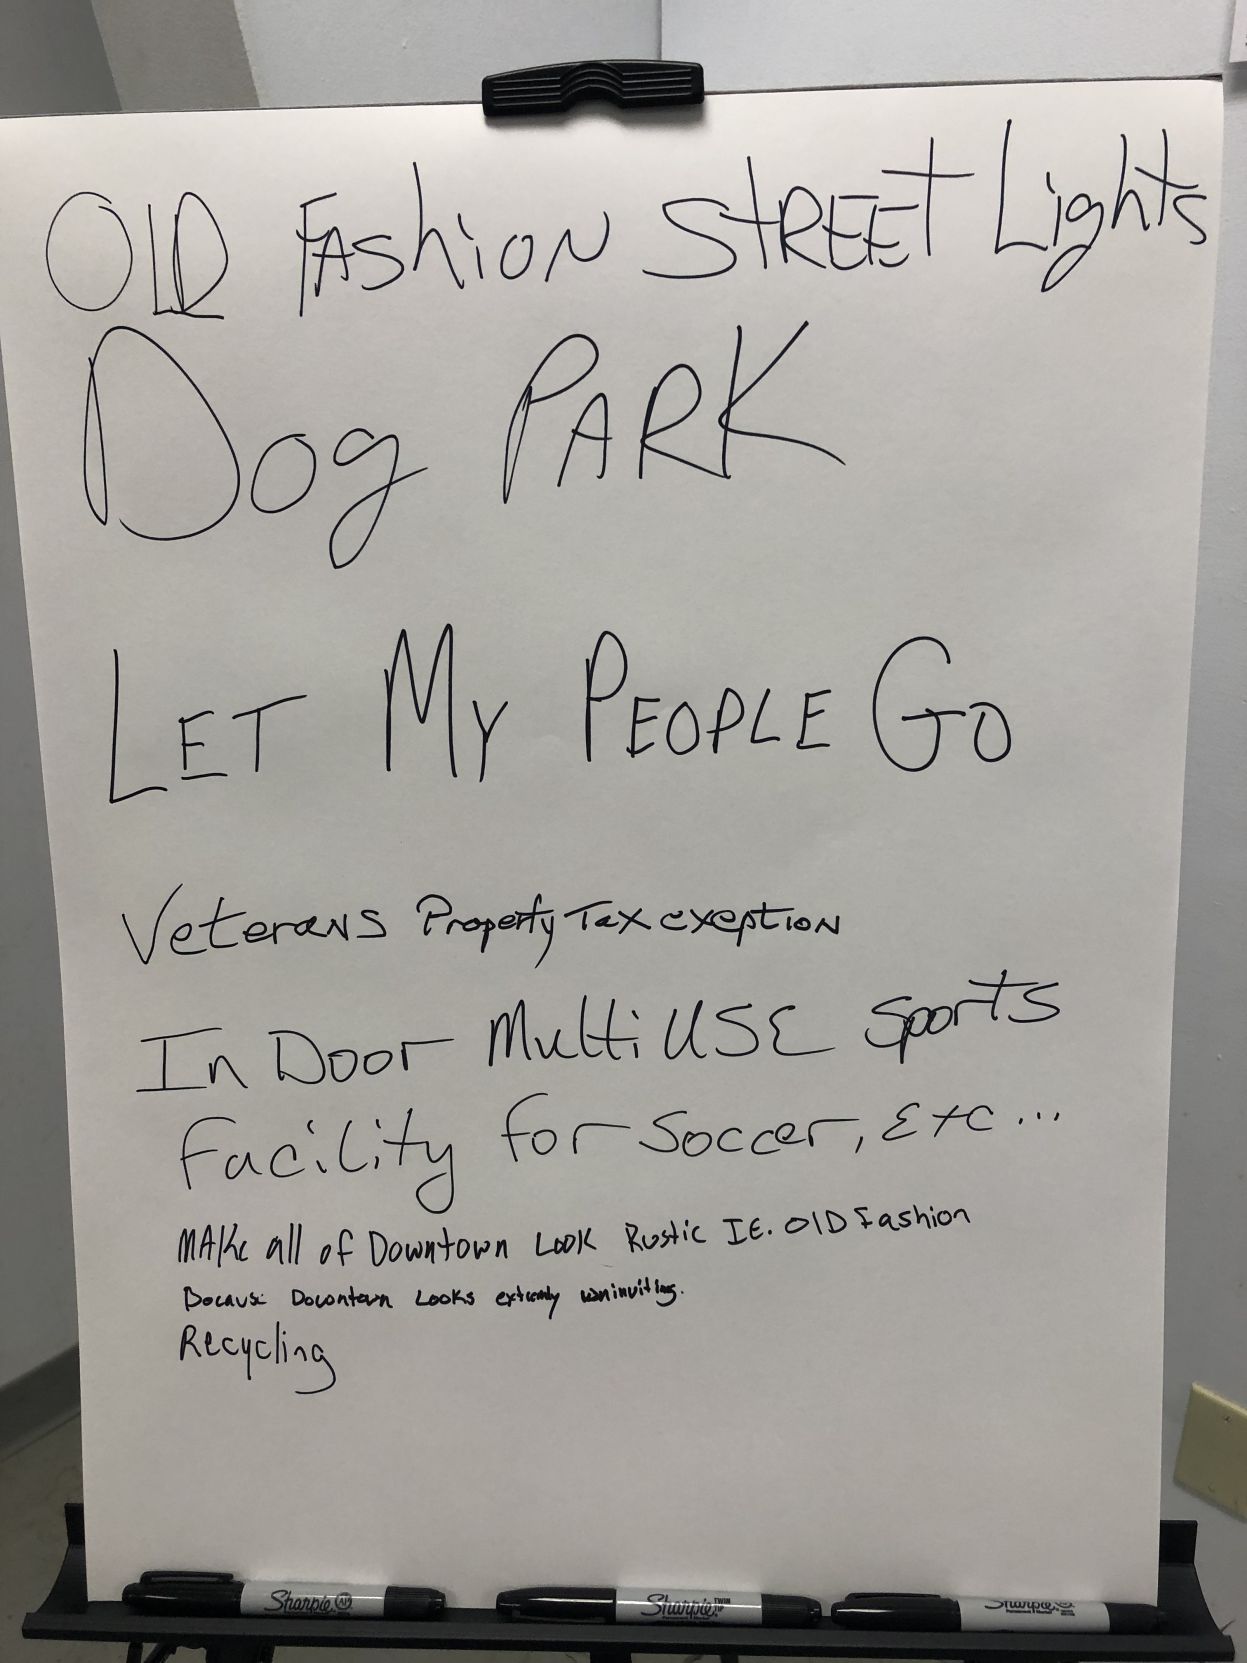 OLD FAShiON StREEt Lights
Dog PARK
LET MY PEOPLE GO
VeteraNS Property Tax exeptioN
In Door Multi USE Sports
Facility for Soccer, Etc...
MAKe all of Downtown LOOK Rustic IE. OlD Fashion
Because Downtown Looks extremly uninviting.
Recycling
Sharpie
Sharpie TWIN TIP
Sharpie